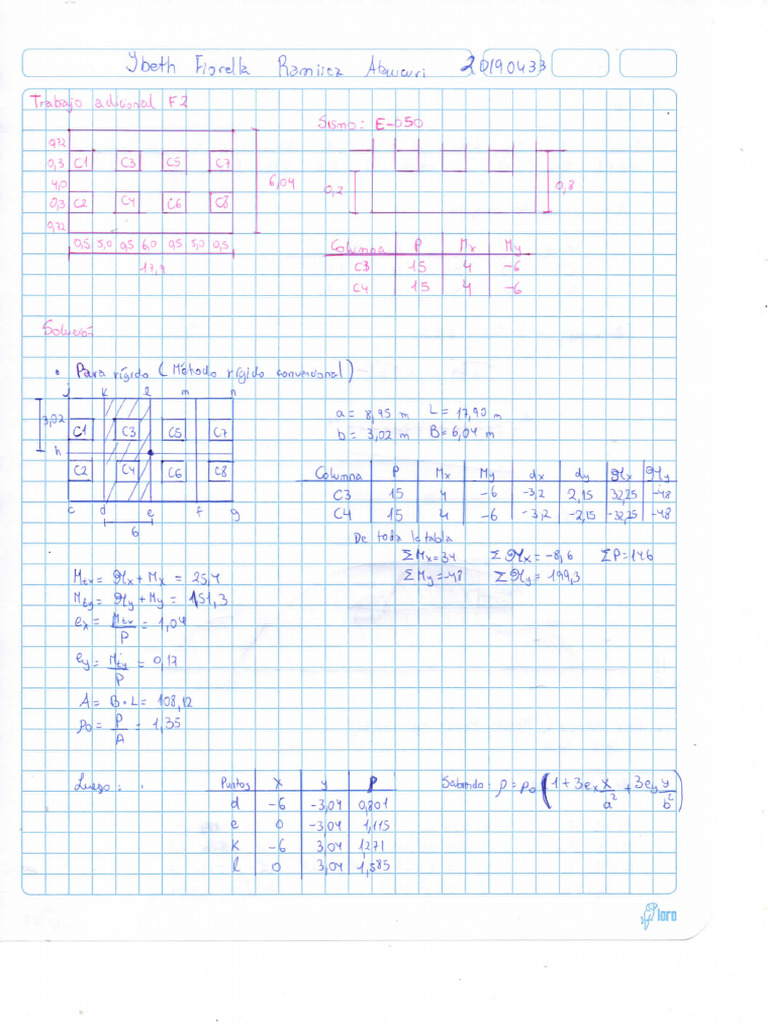 Ybeth Fiorella Ramirez Ataucuri 20190433
Trabajo adicional F2
Sismo: E-050
0,72
0,3 C1 C3 C5 C7
4,0
0,3 C2 C4 C6 C8
0,72
6,04
0,5 5,0 0,5 6,0 0,5 5,0 0,5
17,9
0,2
0,8
Columna P Mx My
C3 15 4 -6
C4 15 4 -6
Solución
• Para rígido (Método rígido convencional)
j k l m n
3,02
C1 C3 C5 C7
h
C2 C4 C6 C8
c d e f g
6
a = 8,95 m L = 17,90 m
b = 3,02 m B = 6,04 m
Columna P Mx My dx dy ℳx ℳy
C3 15 4 -6 -3,2 2,15 32,25 -48
C4 15 4 -6 -3,2 -2,15 -32,25 -48
De toda la tabla
ΣMx = 34 Σℳx = -8,6 ΣP = 146
ΣMy = -48 Σℳy = 199,3
Mtx = ℳx + Mx = 25,4
Mty = ℳy + My = 151,3
ex = Mtx/P = 1,04
ey = Mty/P = 0,17
A = B · L = 108,12
ρo = P/A = 1,35
Luego:
Puntos x y ρ
d -6 -3,04 0,801
e 0 -3,04 1,115
k -6 3,04 1271
l 0 3,04 1,585
Sabiendo: ρ = ρo (1 + 3ex x/a² + 3ey y/b²)
loro